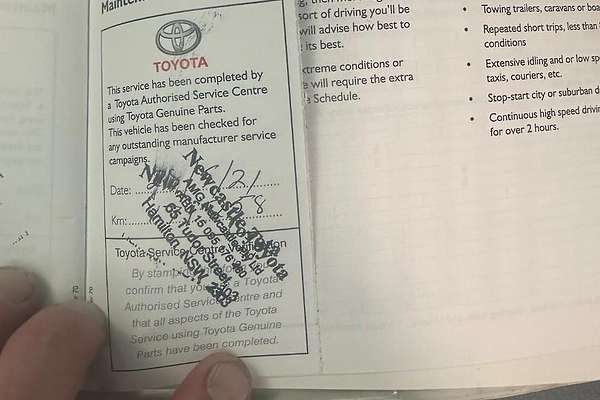 Mainten
TOYOTA
This service has been completed by
a Toyota Authorised Service Centre
using Toyota Genuine Parts.
This vehicle has been checked for
any outstanding manufacturer service
campaigns.
Date:
Km:
Newcastle Toyota
Tudor Street
Hamilton NSW
Toyota Service Centre Verification
By stamp
confirm that you a Toyota
Authorised Service Centre and
that all aspects of the Toyota
Service using Toyota Genuine
Parts have been completed.
sort of driving you'll be
will advise how best to
its best.
xtreme conditions or
e will require the extra
Schedule.
• Towing trailers, caravans or boa
• Repeated short trips, less than
conditions
• Extensive idling and or low sp
taxis, couriers, etc.
• Stop-start city or suburban d
• Continuous high speed drivi
for over 2 hours.